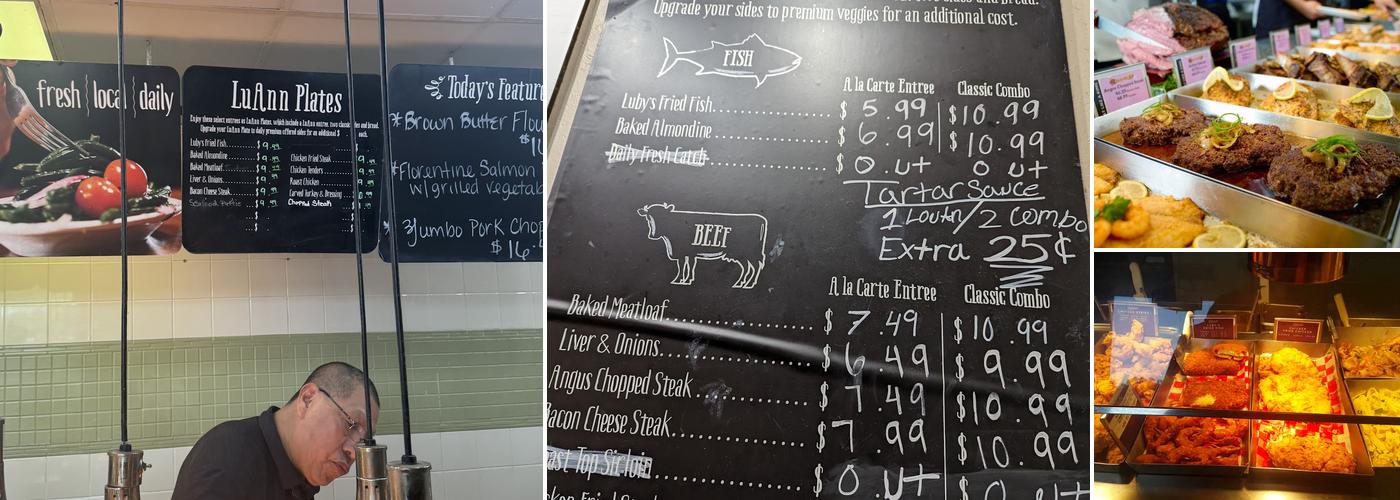 fresh | local | daily
LuAnn Plates
Enjoy these select entrees as LuAnn Plates, which include a LuAnn entree, two classic and bread.
Upgrade your LuAnn Plate to daily premium offered sides for an additional $ each.
Luby's Fried Fish $9.
Baked Almondine $9.
Baked Meatloaf $9.
Liver & Onions $9.
Bacon Cheese Steak $9.
Chicken Fried Steak
Chicken Tenders
Roast Chicken
Carved Turkey & Dressing
Chopped Steak
Today's Feature
*Brown Butter Flou
$1
*Florentine Salmon
w/grilled vegetab
Jumbo Pork Chop
$16
sides and bread.
Upgrade your sides to premium veggies for an additional cost.
FISH
A la Carte Entree Classic Combo
Luby's Fried Fish $5.99 $10.99
Baked Almondine $6.99 $10.99
Daily Fresh Catch $0.ut 0 ut
Tartar Sauce
1 Louann/2 Combo
Extra 25¢
BEEF
A la Carte Entree Classic Combo
Baked Meatloaf $7.49 $10.99
Liver & Onions $6.49 $9.99
Angus Chopped Steak $7.49 $10.99
Bacon Cheese Steak $7.99 $10.99
ast Top Sirloin $0.ut 0 ut
cken Fried Steak
Angus Chopped Steak